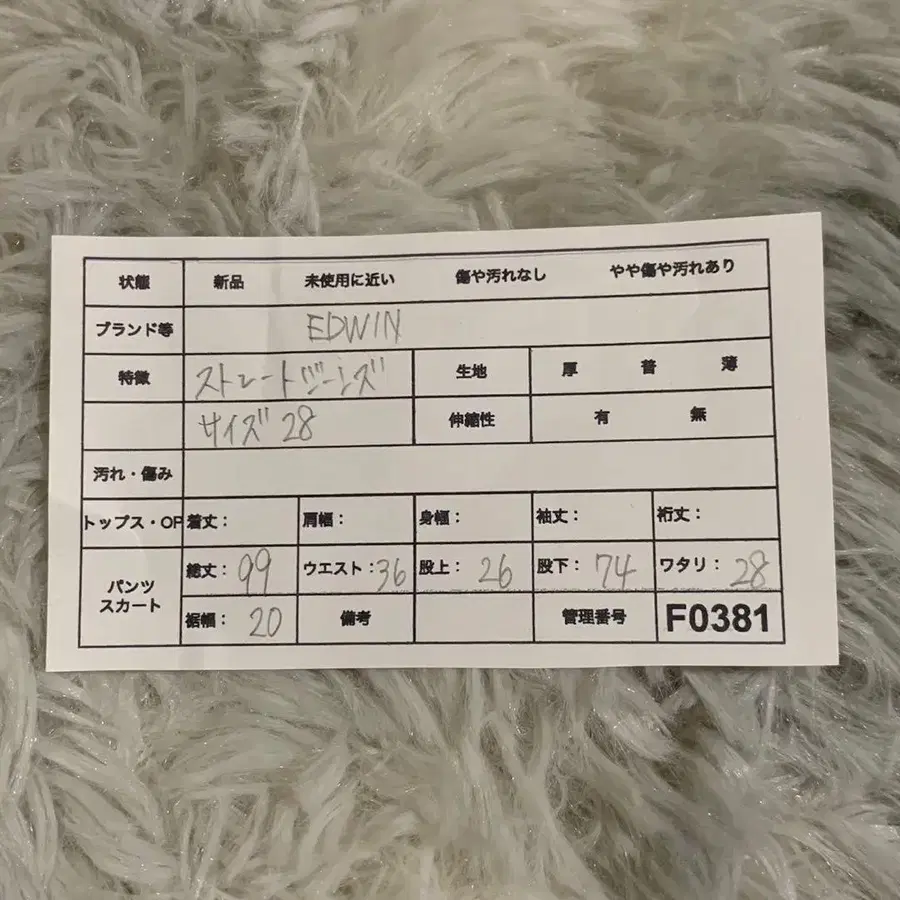 状態 新品 未使用に近い 傷や汚れなし やや傷や汚れあり
ブランド等 EDWIN
特徴 ストレートジーンズ 生地 厚 普 薄
サイズ 28 伸縮性 有 無
汚れ・傷み
トップス・OP 着丈: 肩幅: 身幅: 袖丈: 裄丈:
パンツ スカート 総丈: 99 ウエスト: 36 股上: 26 股下: 74 ワタリ: 28
裾幅: 20 備考 管理番号 F0381